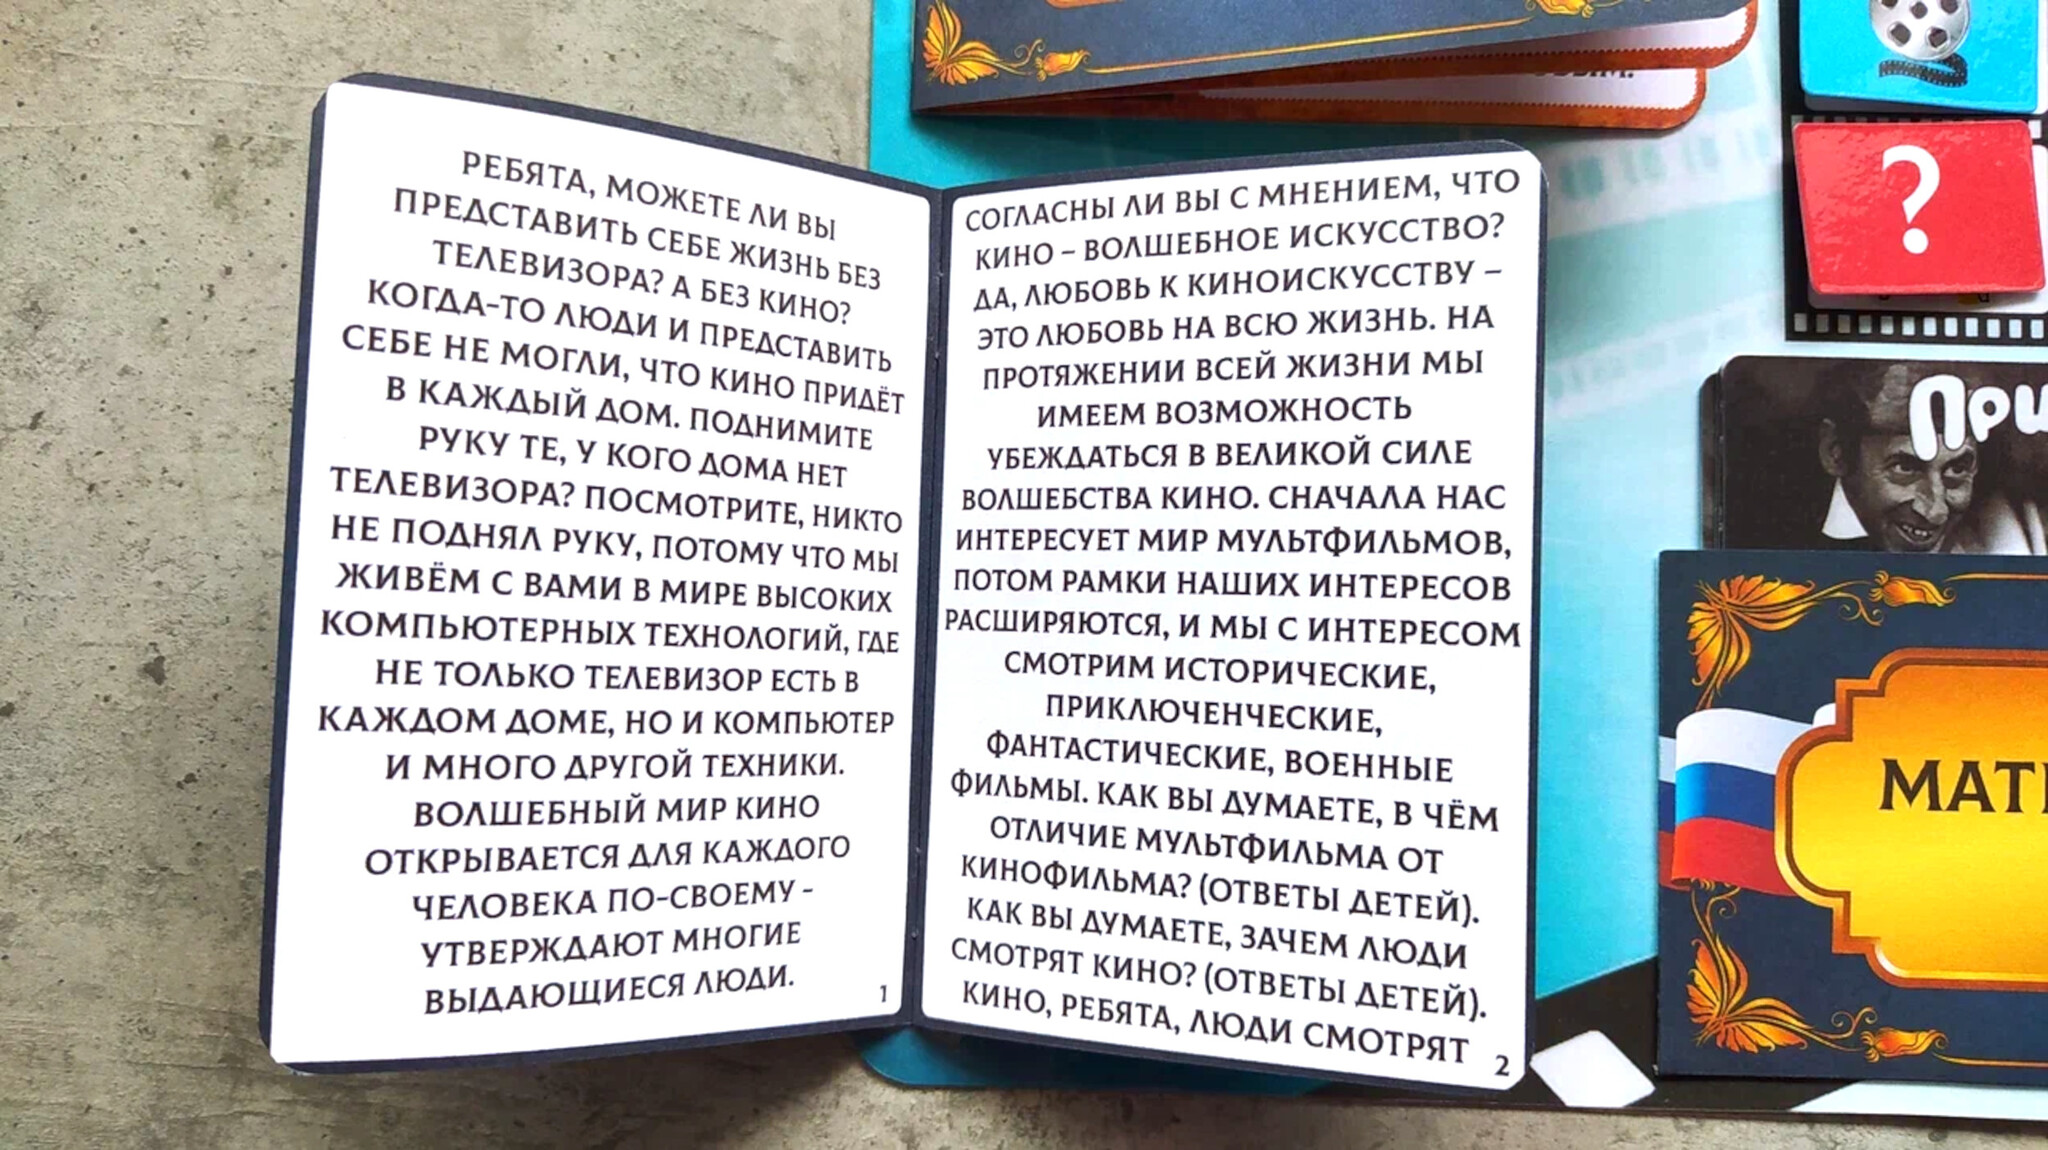 РЕБЯТА, МОЖЕТЕ ЛИ ВЫ
ПРЕДСТАВИТЬ СЕБЕ ЖИЗНЬ БЕЗ
ТЕЛЕВИЗОРА? А БЕЗ КИНО?
КОГДА-ТО ЛЮДИ И ПРЕДСТАВИТЬ
СЕБЕ НЕ МОГЛИ, ЧТО КИНО ПРИДЁТ
В КАЖДЫЙ ДОМ. ПОДНИМИТЕ
РУКУ ТЕ, У КОГО ДОМА НЕТ
ТЕЛЕВИЗОРА? ПОСМОТРИТЕ, НИКТО
НЕ ПОДНЯЛ РУКУ, ПОТОМУ ЧТО МЫ
ЖИВЁМ С ВАМИ В МИРЕ ВЫСОКИХ
КОМПЬЮТЕРНЫХ ТЕХНОЛОГИЙ, ГДЕ
НЕ ТОЛЬКО ТЕЛЕВИЗОР ЕСТЬ В
КАЖДОМ ДОМЕ, НО И КОМПЬЮТЕР
И МНОГО ДРУГОЙ ТЕХНИКИ.
ВОЛШЕБНЫЙ МИР КИНО
ОТКРЫВАЕТСЯ ДЛЯ КАЖДОГО
ЧЕЛОВЕКА ПО-СВОЕМУ -
УТВЕРЖДАЮТ МНОГИЕ
ВЫДАЮЩИЕСЯ ЛЮДИ.
1
СОГЛАСНЫ ЛИ ВЫ С МНЕНИЕМ, ЧТО
КИНО – ВОЛШЕБНОЕ ИСКУССТВО?
ДА, ЛЮБОВЬ К КИНОИСКУССТВУ –
ЭТО ЛЮБОВЬ НА ВСЮ ЖИЗНЬ. НА
ПРОТЯЖЕНИИ ВСЕЙ ЖИЗНИ МЫ
ИМЕЕМ ВОЗМОЖНОСТЬ
УБЕЖДАТЬСЯ В ВЕЛИКОЙ СИЛЕ
ВОЛШЕБСТВА КИНО. СНАЧАЛА НАС
ИНТЕРЕСУЕТ МИР МУЛЬТФИЛЬМОВ,
ПОТОМ РАМКИ НАШИХ ИНТЕРЕСОВ
РАСШИРЯЮТСЯ, И МЫ С ИНТЕРЕСОМ
СМОТРИМ ИСТОРИЧЕСКИЕ,
ПРИКЛЮЧЕНЧЕСКИЕ,
ФАНТАСТИЧЕСКИЕ, ВОЕННЫЕ
ФИЛЬМЫ. КАК ВЫ ДУМАЕТЕ, В ЧЁМ
ОТЛИЧИЕ МУЛЬТФИЛЬМА ОТ
КИНОФИЛЬМА? (ОТВЕТЫ ДЕТЕЙ).
КАК ВЫ ДУМАЕТЕ, ЗАЧЕМ ЛЮДИ
СМОТРЯТ КИНО? (ОТВЕТЫ ДЕТЕЙ).
КИНО, РЕБЯТА, ЛЮДИ СМОТРЯТ
2
?
При
МАТ